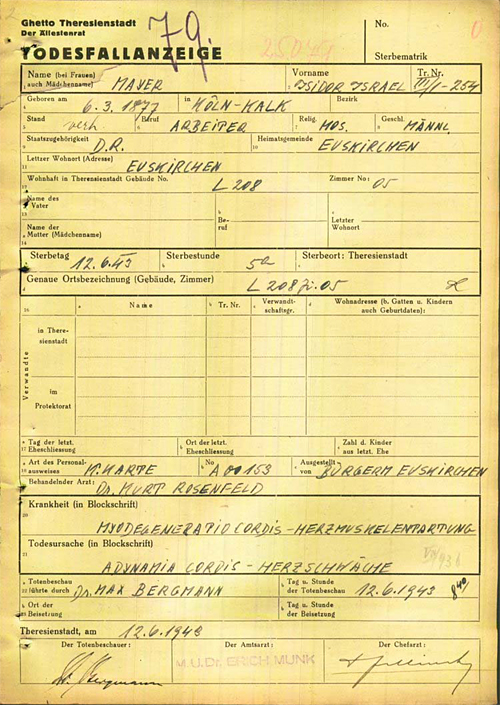 Ghetto Theresienstadt
Der Ältestenrat
79.
No. 0
TODESFALLANZEIGE
Sterbematrik
Name (bei Frauen auch Mädchenname) MAYER Vorname ISIDOR ISRAEL Tr. Nr. III/1-254
Geboren am 6.3.1877 in KÖLN-KALK Bezirk
Stand verh. Beruf ARBEITER Relig. MOS. Geschl. MÄNNL.
Staatszugehörigkeit D.R. Heimatsgemeinde EUSKIRCHEN
Letzter Wohnort (Adresse) EUSKIRCHEN
Wohnhaft in Theresienstadt Gebäude No. L 208 Zimmer No: 05
Name des Vater Beruf Letzter Wohnort
Name der Mutter (Mädchenname)
Sterbetag 12.6.43 Sterbestunde 5 Sterbeort: Theresienstadt
Genaue Ortsbezeichnung (Gebäude, Zimmer) L 208 Zi. 05
Name Tr. Nr. Verwandtschaftsgr. Wohnadresse (b. Gatten u. Kindern auch Geburtdaten):
Verwandte
in Theresienstadt
im Protektorat
Tag der letzt. Eheschliessung Ort der letzt. Eheschliessung Zahl d. Kinder aus letzt. Ehe
Art des Personalausweises K. KARTE No A 00153 Ausgestellt von BÜRGERM EUSKIRCHEN
Behandelnder Arzt: Dr. KURT ROSENFELD
Krankheit (in Blockschrift)
MYODEGENERATIO CORDIS - HERZMUSKELENTARTUNG
Todesursache (in Blockschrift)
ADYNAMIA CORDIS - HERZSCHWÄCHE
Totenbeschau führte durch Dr. MAX BERGMANN Tag u. Stunde der Totenbeschau 12.6.1943 8⁴⁰
Ort der Beisetzung Tag u. Stunde der Beisetzung
Theresienstadt, am 12.6.1943
Der Totenbeschauer: Der Amtsarzt: Der Chefarzt:
Dr. Bergmann M.U.Dr. ERICH MUNK